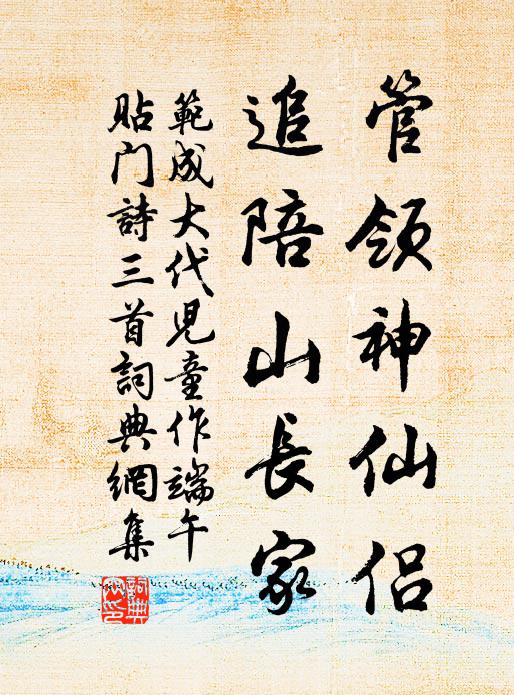 管领神仙侣
追陪山長家
範成大代児童作端午
贴门詩三首詞典網集